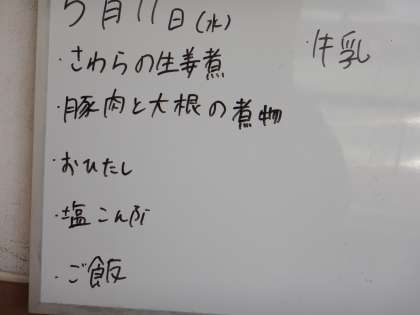 5月11日(水)
・さわらの生姜煮
・牛乳
・豚肉と大根の煮物
・おひたし
・塩こんぶ
・ご飯